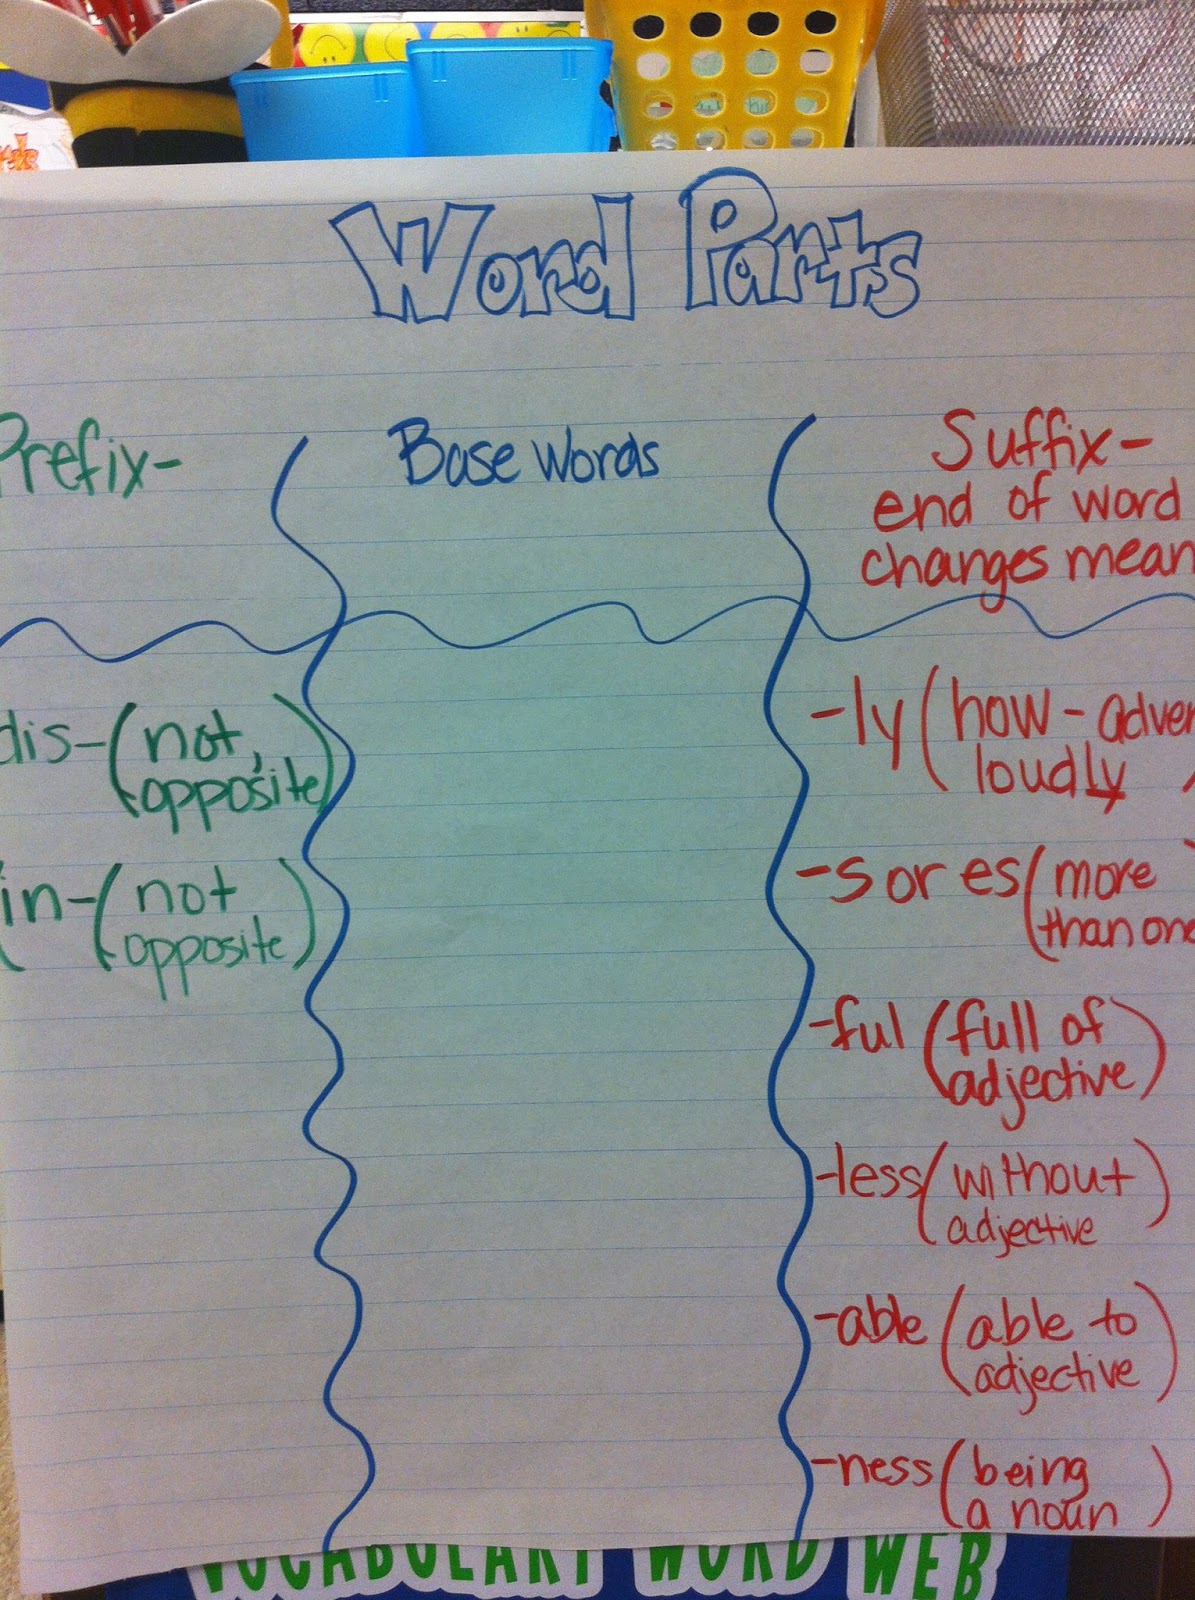 Word Parts
Prefix-
Base words
Suffix-
end of word
changes mean
dis- (not,
opposite)
in- (not
opposite)
-ly (how - adver
loudly
-s or es (more
than one
-ful (full of
adjective)
-less (without
adjective)
-able (able to
adjective)
-ness (being
a noun)
VOCABULARY WORD WEB